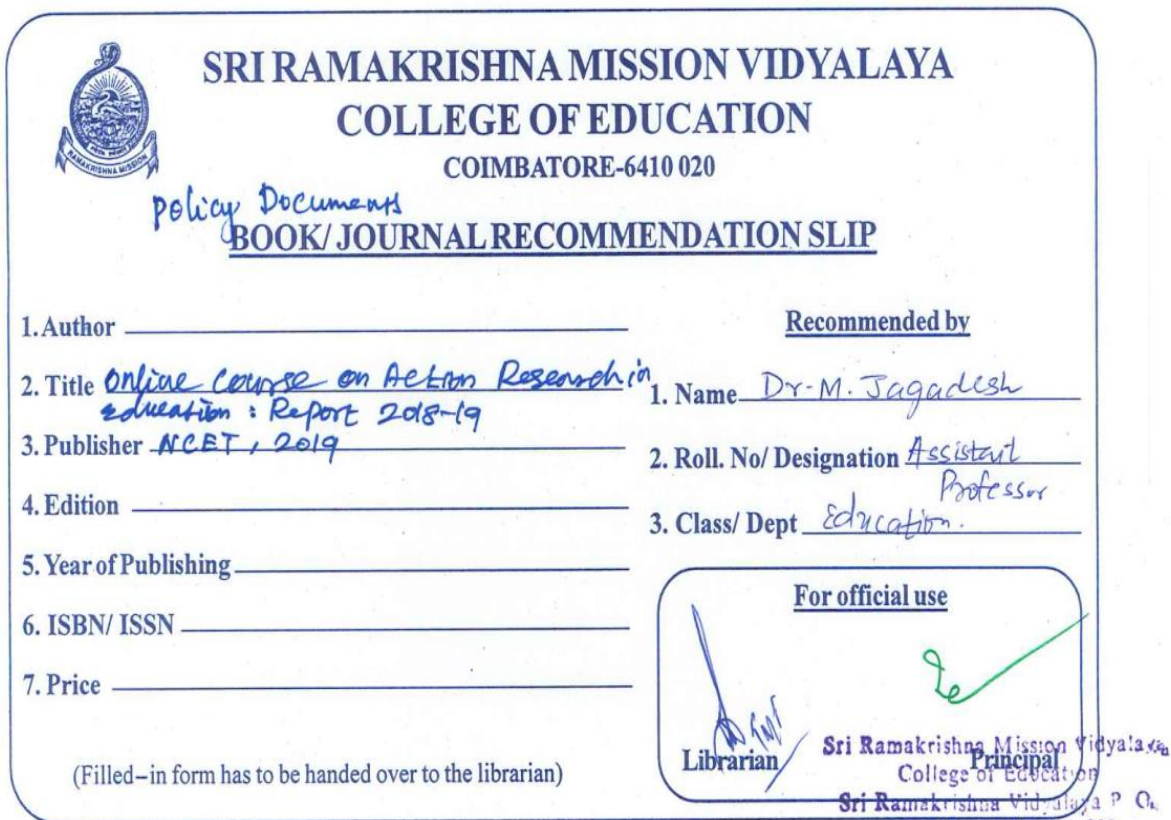 SRI RAMAKRISHNA MISSION VIDYALAYA
COLLEGE OF EDUCATION
COIMBATORE-6410 020
RAMAKRISHNA MISSION
Policy Documents
BOOK/ JOURNAL RECOMMENDATION SLIP
1. Author
2. Title Online Course on Action Research in
Education : Report 2018-19
3. Publisher NCET, 2019
4. Edition
5. Year of Publishing
6. ISBN/ ISSN
7. Price
(Filled–in form has to be handed over to the librarian)
Recommended by
1. Name Dr. M. Jagadesh
2. Roll. No/ Designation Assistant
Professor
3. Class/ Dept Education.
For official use
Librarian
Principal
Sri Ramakrishna Mission Vidyalaya
College of Education
Sri Ramakrishna Vidyalaya P. O.